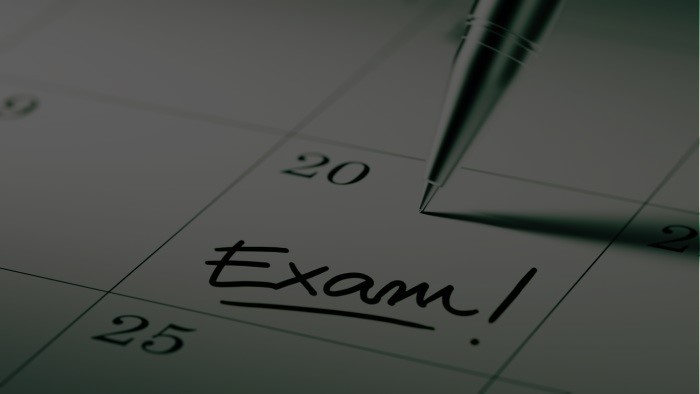 9
20
2
Exam!
25